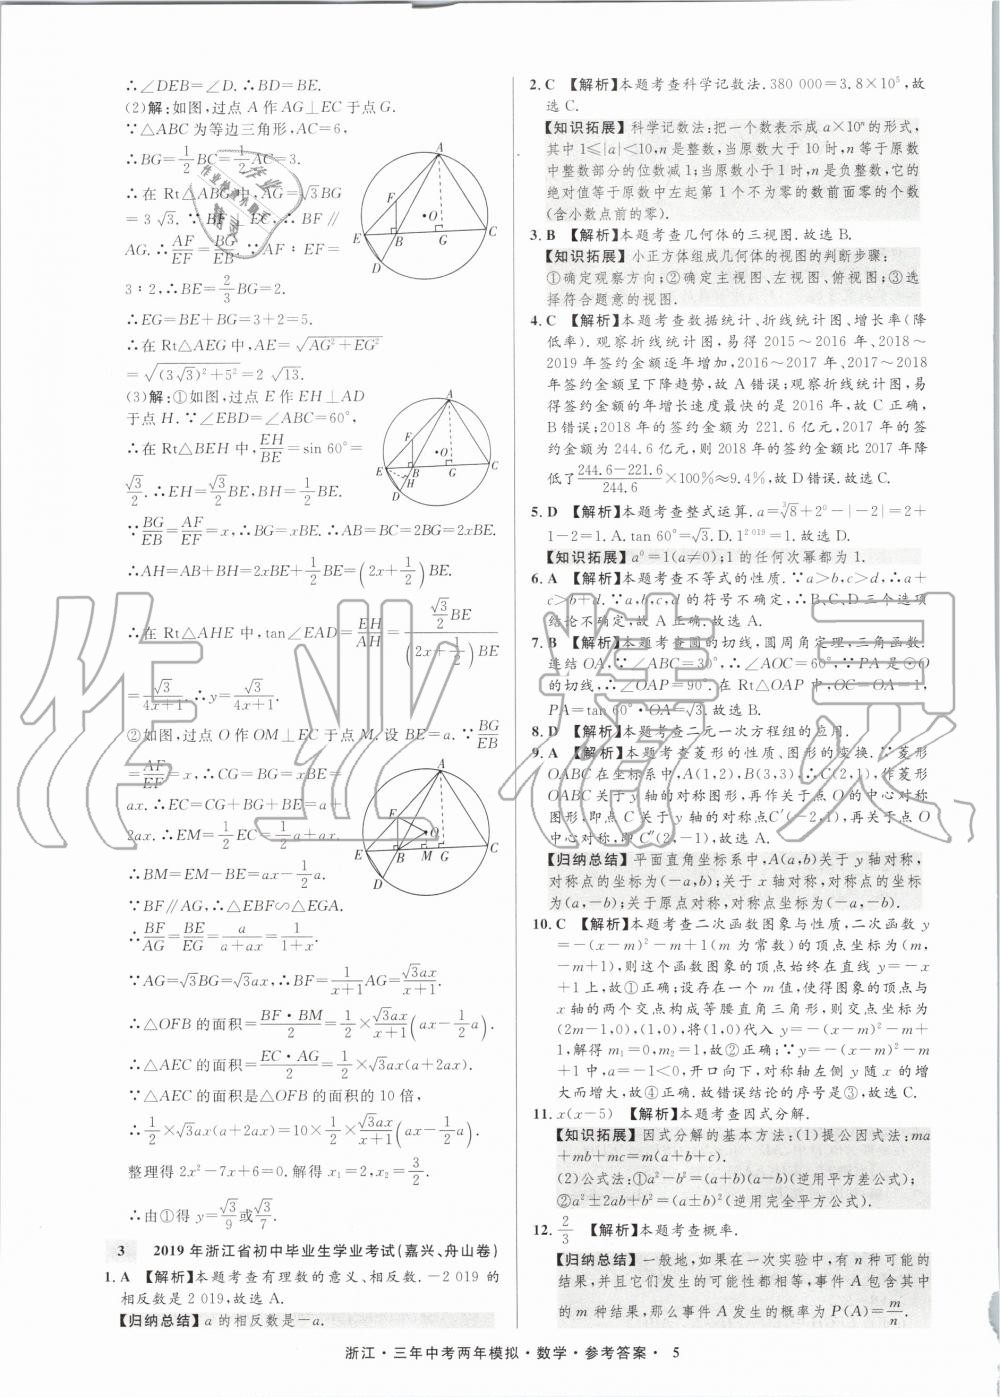 ∴∠DEB=∠D.∴BD=BE.
(2)解:如图,过点 A 作 AG⊥EC 于点 G.
∵△ABC 为等边三角形,AC=6,
∴BG=1/2BC=1/2AC=3.
∴在 Rt△ABG 中,AG=√3BG
=3√3.∵BF⊥EC,∴BF∥
AG.∴AF/EF=BG/EB.∵AF∶EF=
3∶2,∴BE=2/3BG=2.
∴EG=BE+BG=3+2=5.
∴在 Rt△AEG 中,AE=√(AG²+EG²)
=√((3√3)²+5²)=2√13.
(3)解:①如图,过点 E 作 EH⊥AD
于点 H.∵∠EBD=∠ABC=60°,
∴在 Rt△BEH 中,EH/BE=sin 60°=
√3/2.∴EH=√3/2BE,BH=1/2BE.
∵BG/EB=AF/EF=x,∴BG=xBE.∴AB=BC=2BG=2xBE.
∴AH=AB+BH=2xBE+1/2BE=(2x+1/2)BE.
∴在 Rt△AHE 中,tan∠EAD=EH/AH=(√3/2BE)/((2x+1/2)BE)
=√3/(4x+1).∴y=√3/(4x+1).
②如图,过点 O 作 OM⊥EC 于点 M.设 BE=a.∵BG/EB
=AF/EF=x,∴CG=BG=xBE=
ax.∴EC=CG+BG+BE=a+
2ax.∴EM=1/2EC=1/2a+ax.
∴BM=EM-BE=ax-1/2a.
∵BF∥AG,∴△EBF∽△EGA.
∴BF/AG=BE/EG=a/(a+ax)=1/(1+x).
∵AG=√3BG=√3ax,∴BF=1/(x+1)AG=√3ax/(x+1).
∴△OFB 的面积=BF·BM/2=1/2×√3ax/(x+1)(ax-1/2a).
∴△AEC 的面积=EC·AG/2=1/2×√3ax(a+2ax).
∵△AEC 的面积是△OFB 的面积的 10 倍,
∴1/2×√3ax(a+2ax)=10×1/2×√3ax/(x+1)(ax-1/2a).
整理得 2x²-7x+6=0.解得 x₁=2,x₂=3/2.
∴由①得 y=√3/9或√3/7.
3 2019 年浙江省初中毕业生学业考试(嘉兴、舟山卷)
1. A 【解析】本题考查有理数的意义、相反数.-2 019 的
相反数是 2 019,故选 A.
【归纳总结】a 的相反数是-a.
2. C 【解析】本题考查科学记数法.380 000=3.8×10⁵,故
选 C.
【知识拓展】科学记数法:把一个数表示成 a×10ⁿ 的形式,
其中 1≤|a|<10,n 是整数,当原数大于 10 时,n 等于原数
中整数部分的位数减 1;当原数小于 1 时,n 是负整数,它的
绝对值等于原数中左起第 1 个不为零的数前面零的个数
(含小数点前的零).
3. B 【解析】本题考查几何体的三视图.故选 B.
【知识拓展】小正方体组成几何体的视图的判断步骤:
①确定观察方向;②确定主视图、左视图、俯视图;③选
择符合题意的视图.
4. C 【解析】本题考查数据统计、折线统计图、增长率(降
低率).观察折线统计图,易得 2015～2016 年、2018～
2019 年签约金额逐年增加,2016～2017 年、2017～2018
年签约金额呈下降趋势,故 A 错误;观察折线统计图,易
得签约金额的年增长速度最快的是 2016 年,故 C 正确,
B 错误;2018 年的签约金额为 221.6 亿元,2017 年的签
约金额为 244.6 亿元,则 2018 年的签约金额比 2017 年降
低了(244.6-221.6)/244.6×100%≈9.4%,故 D 错误.故选 C.
5. D 【解析】本题考查整式运算.a=∛8+2⁰-|-2|=2+
1-2=1. A. tan 60°=√3. D. 1²⁰¹⁹=1.故选 D.
【知识拓展】a⁰=1(a≠0);1 的任何次幂都为 1.
6. A 【解析】本题考查不等式的性质.∵a>b,c>d,∴a+
c>b+d.∵a,b,c,d 的符号不确定,∴B,C,D 三个选项
结论不确定,故 A 正确.故选 A.
7. B 【解析】本题考查圆的切线,圆周角定理,三角函数.
连结 OA,∵∠ABC=30°,∴∠AOC=60°,∵PA 是⊙O
的切线,∴∠OAP=90°.在 Rt△OAP 中,OC=OA=1,
PA=tan 60°·OA=√3.故选 B.
8. D 【解析】本题考查二元一次方程组的应用.
9. A 【解析】本题考查菱形的性质、图形的变换.∵菱形
OABC 在坐标系中,A(1,2),B(3,3),∴C(2,1),作菱形
OABC 关于 y 轴的对称图形,再作关于点 O 的中心对称
图形,即点 C 关于 y 轴的对称点C′(-2,1),再关于点 O
中心对称,即 C″(2,-1),故选 A.
【归纳总结】平面直角坐标系中,A(a,b)关于 y 轴对称,
对称点的坐标为(-a,b);关于 x 轴对称,对称点的坐标
为(a,-b);关于原点对称,对称点坐标为(-a,-b).
10. C 【解析】本题考查二次函数图象与性质,二次函数 y
=-(x-m)²-m+1(m 为常数)的顶点坐标为(m,
-m+1),则这个函数图象的顶点始终在直线 y=-x
+1 上,故①正确;设存在一个 m 值,使得图象的顶点与
x 轴的两个交点构成等腰直角三角形,则交点坐标为
(2m-1,0),(1,0),将(1,0)代入 y=-(x-m)²-m+
1,解得 m₁=0,m₂=1,故②正确;∵y=-(x-m)²-m
+1 中,a=-1<0,开口向下,对称轴左侧 y 随 x 的增
大而增大,故④正确.故错误结论的序号是③,故选 C.
11. x(x-5) 【解析】本题考查因式分解.
【知识拓展】因式分解的基本方法:(1)提公因式法:ma
+mb+mc=m(a+b+c).
(2)公式法:①a²-b²=(a+b)(a-b)(逆用平方差公式);
②a²±2ab+b²=(a±b)²(逆用完全平方公式).
12. 2/3 【解析】本题考查概率.
【归纳总结】一般地,如果在一次实验中,有 n 种可能的
结果,并且它们发生的可能性都相等,事件 A 包含其中
的 m 种结果,那么事件 A 发生的概率为 P(A)=m/n.
浙江·三年中考两年模拟·数学·参考答案· 5
作业精灵